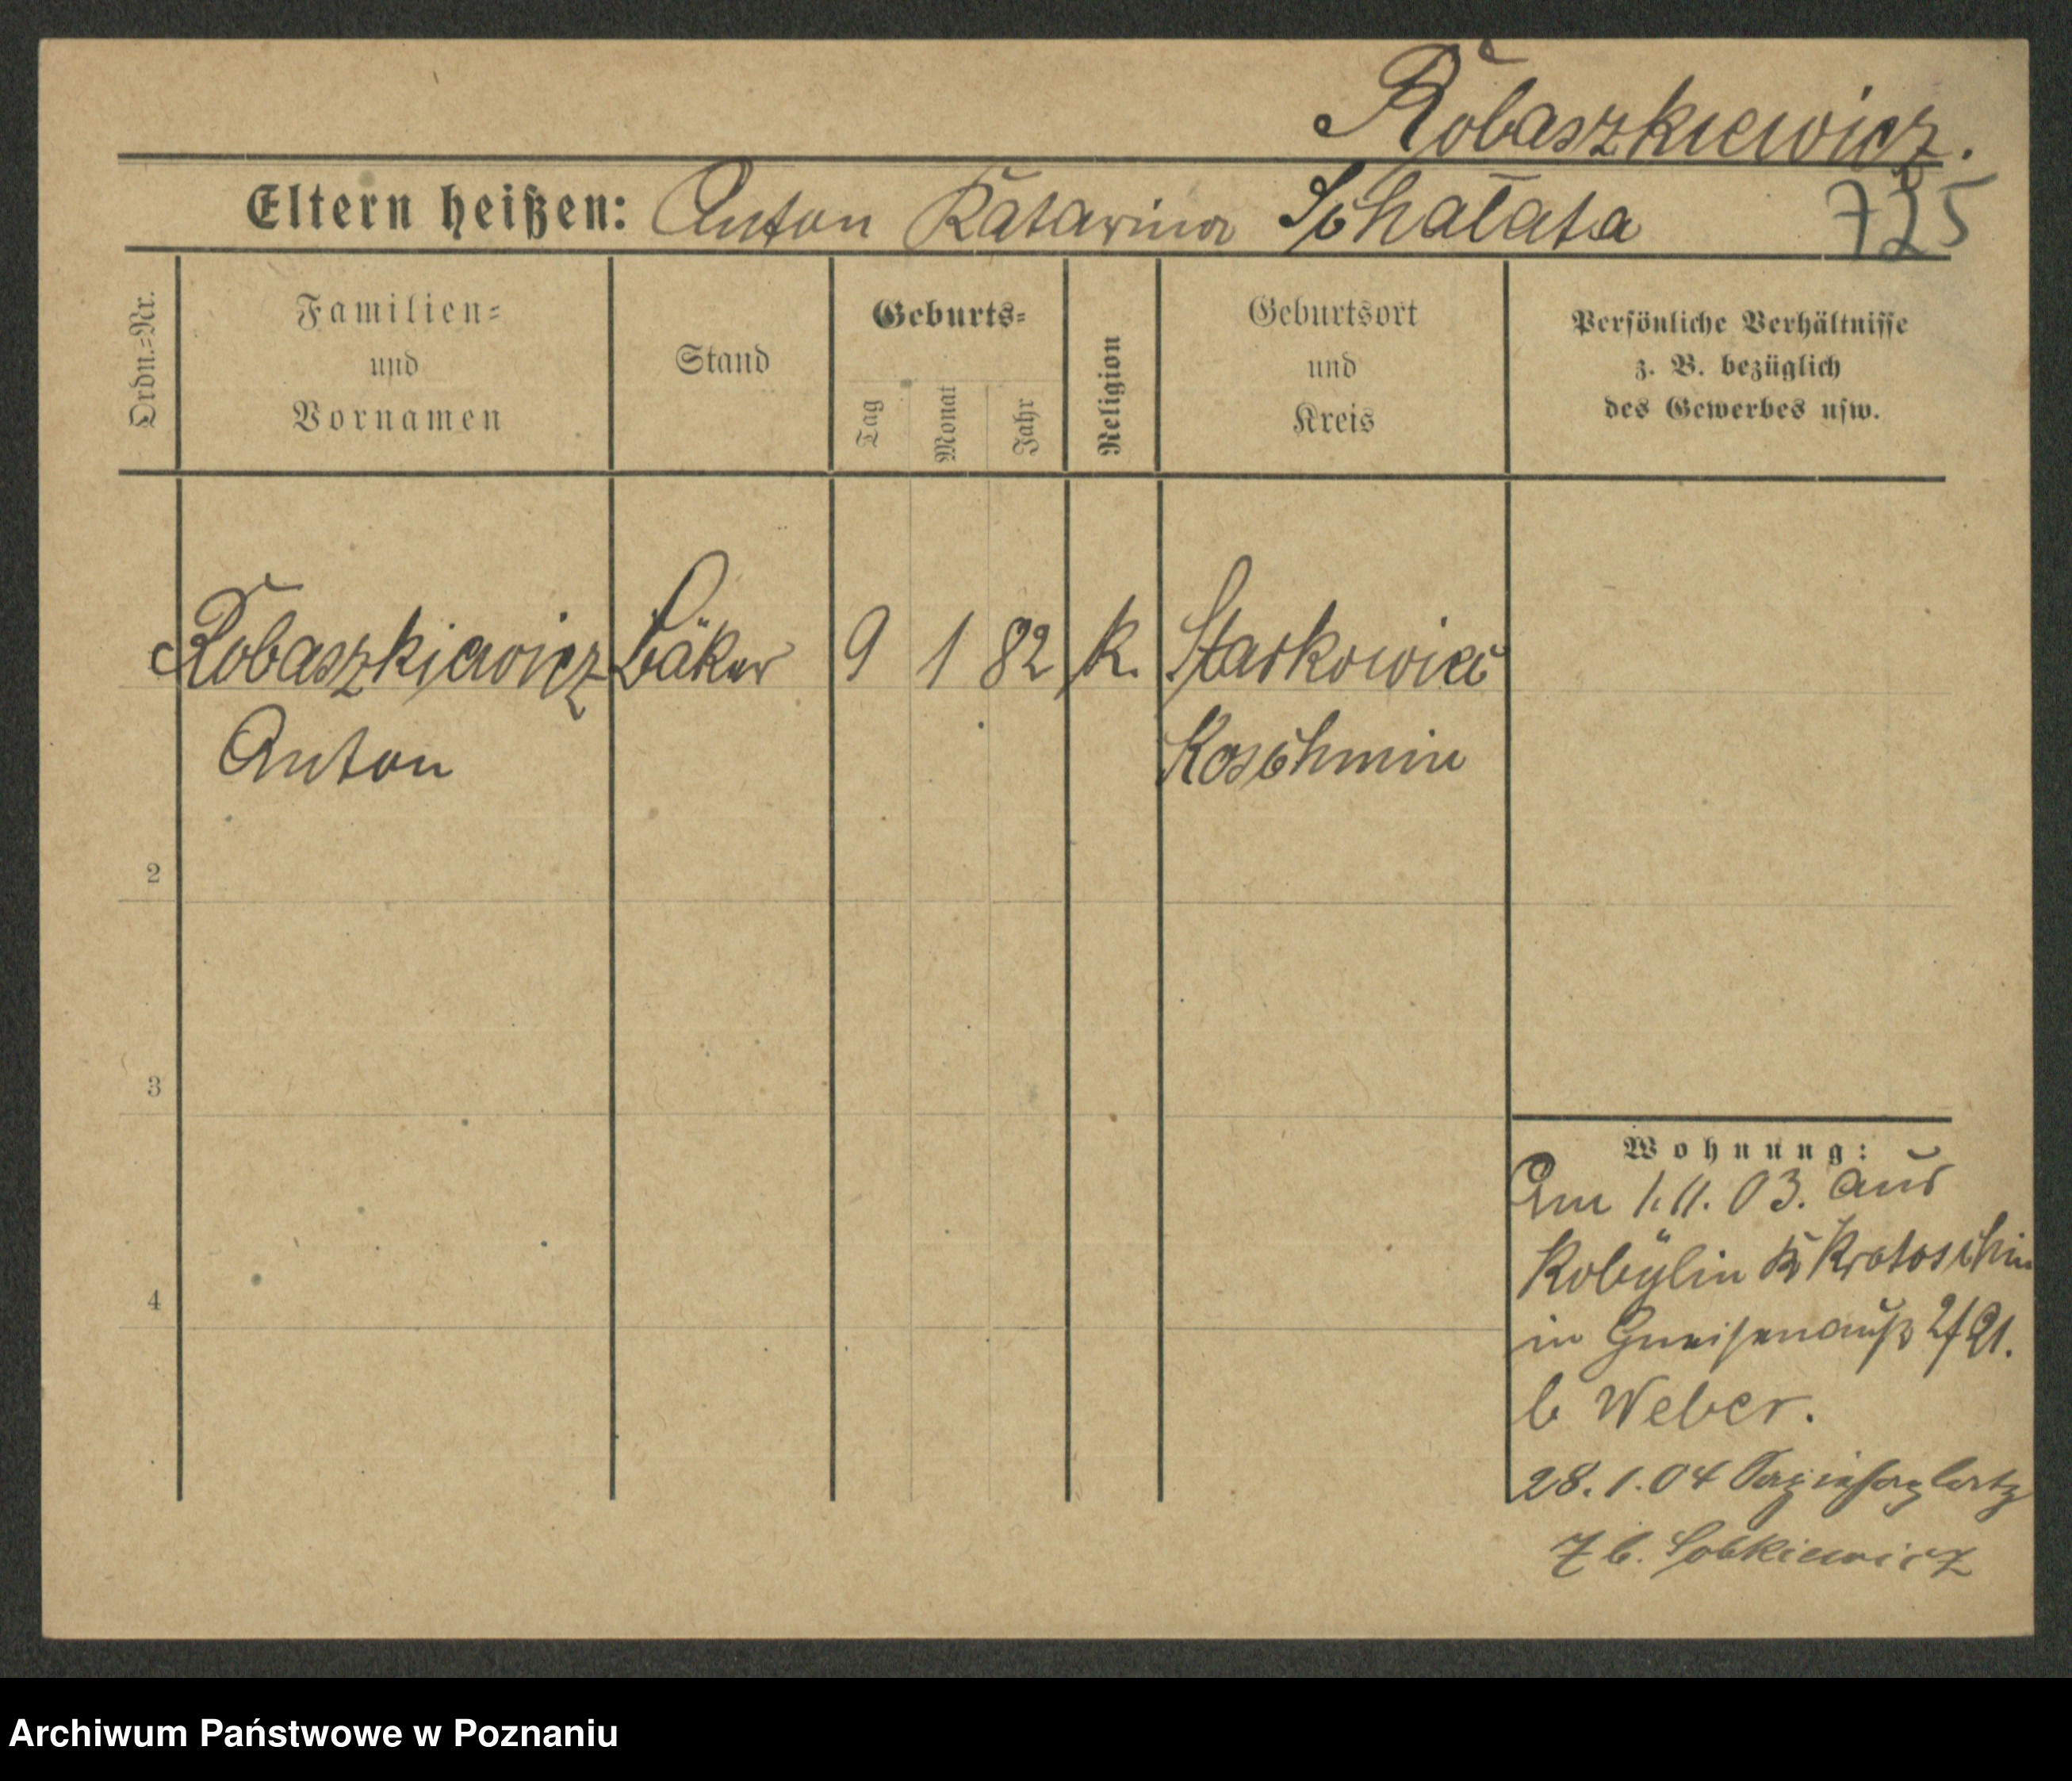 Robaszkiewicz.
Eltern heißen: Anton Katarina Schalata 725
Ordn.=Nr.
Familien=
und
Vornamen
Stand
Geburts=
Tag
Monat
Jahr
Religion
Geburtsort
und
Kreis
Persönliche Verhältnisse
z. B. bezüglich
des Gewerbes usw.
Robaszkiewicz Bäker 9 1 82 K. Starkowiec
Anton Koschmin
2
3
4
Wohnung:
Am 1.11.03. aus
Kobylin Kr Krotoschin
in Gneisenaustr 2/91.
b Weber.
28.1.04
7 b. Sobkiewicz
Archiwum Państwowe w Poznaniu